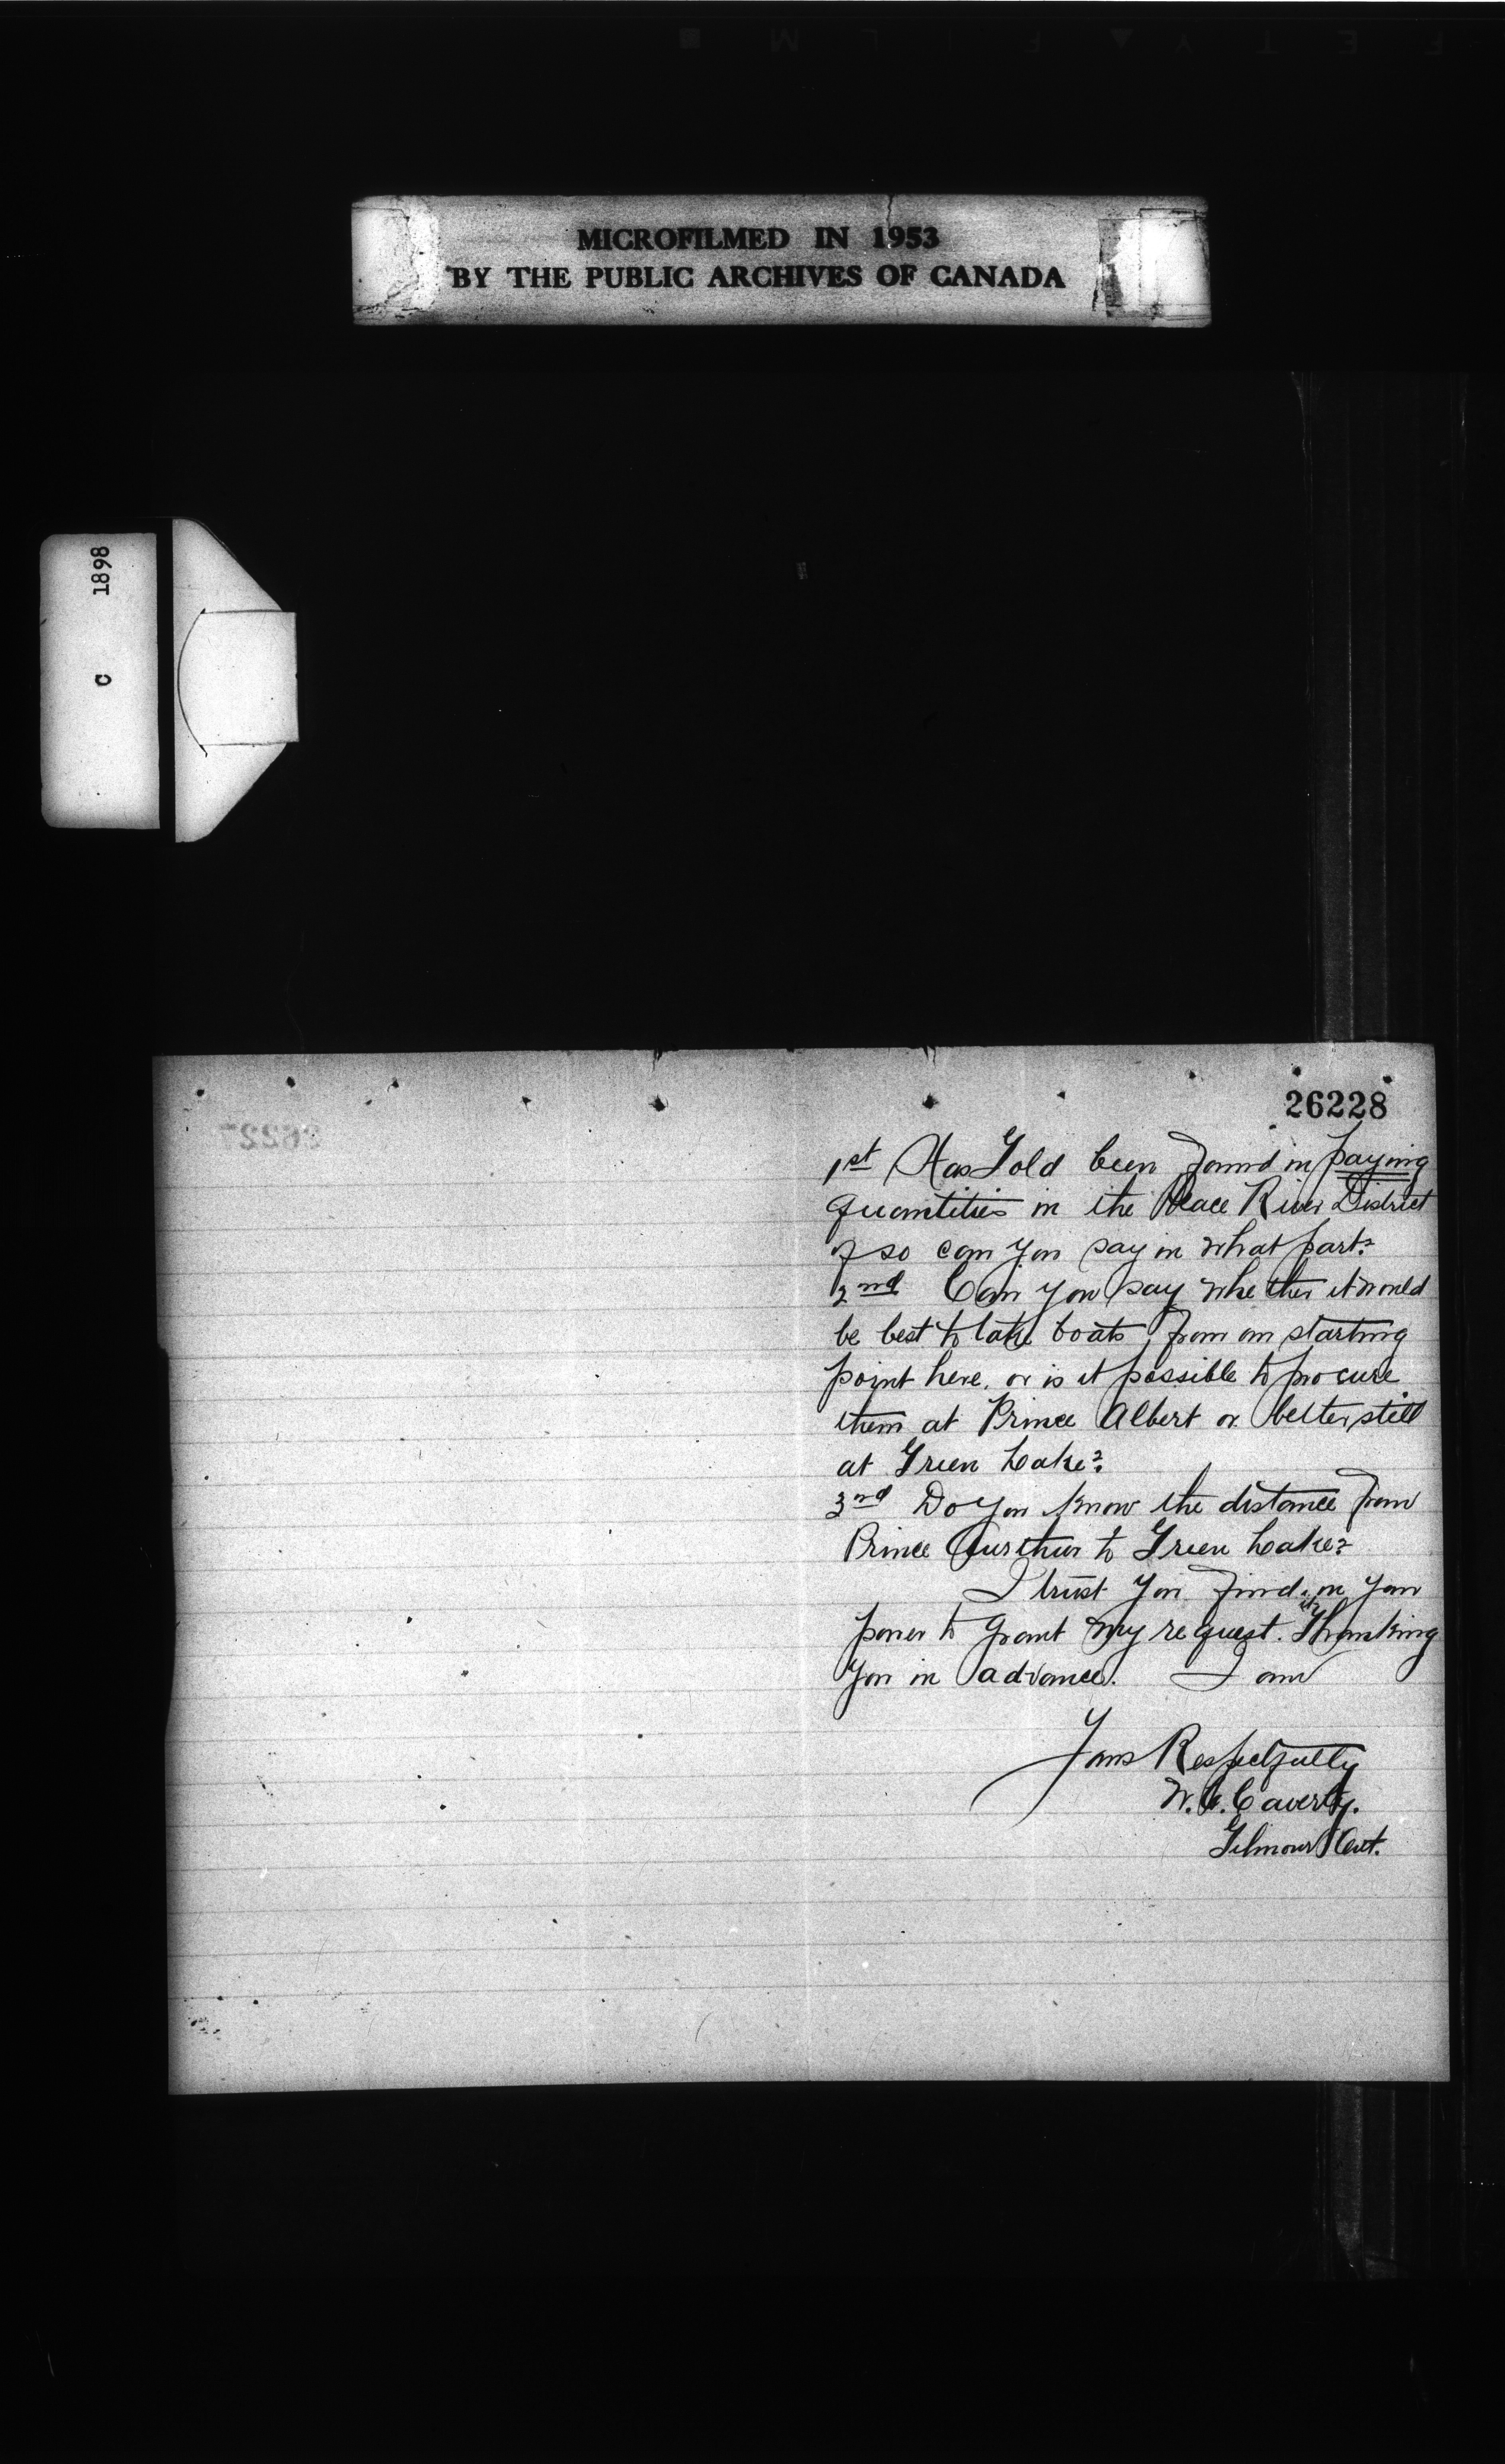 MICROFILMED IN 1953
BY THE PUBLIC ARCHIVES OF CANADA
C 1898
26228
26227
1st Has Gold been found in paying
quantities in the Peace River District
if so can you say in what part?
2nd Can you say whether it would
be best to take boats, from our starting
point here, or is it possible to procure
them at Prince Albert or better still
at Green Lake?
3rd Do you know the distance from
Prince Aurthur to Green Lake?
I trust you find it in your
power to grant my request. Thanking
you in advance. I am
Yours Respectfully
W. Caverly.
Gilmour Ont.